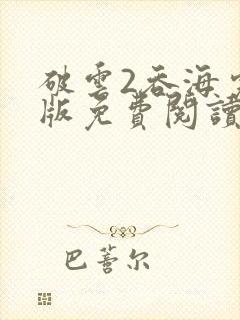 破雲2吞海
版免費閱讀
巴蓍尔